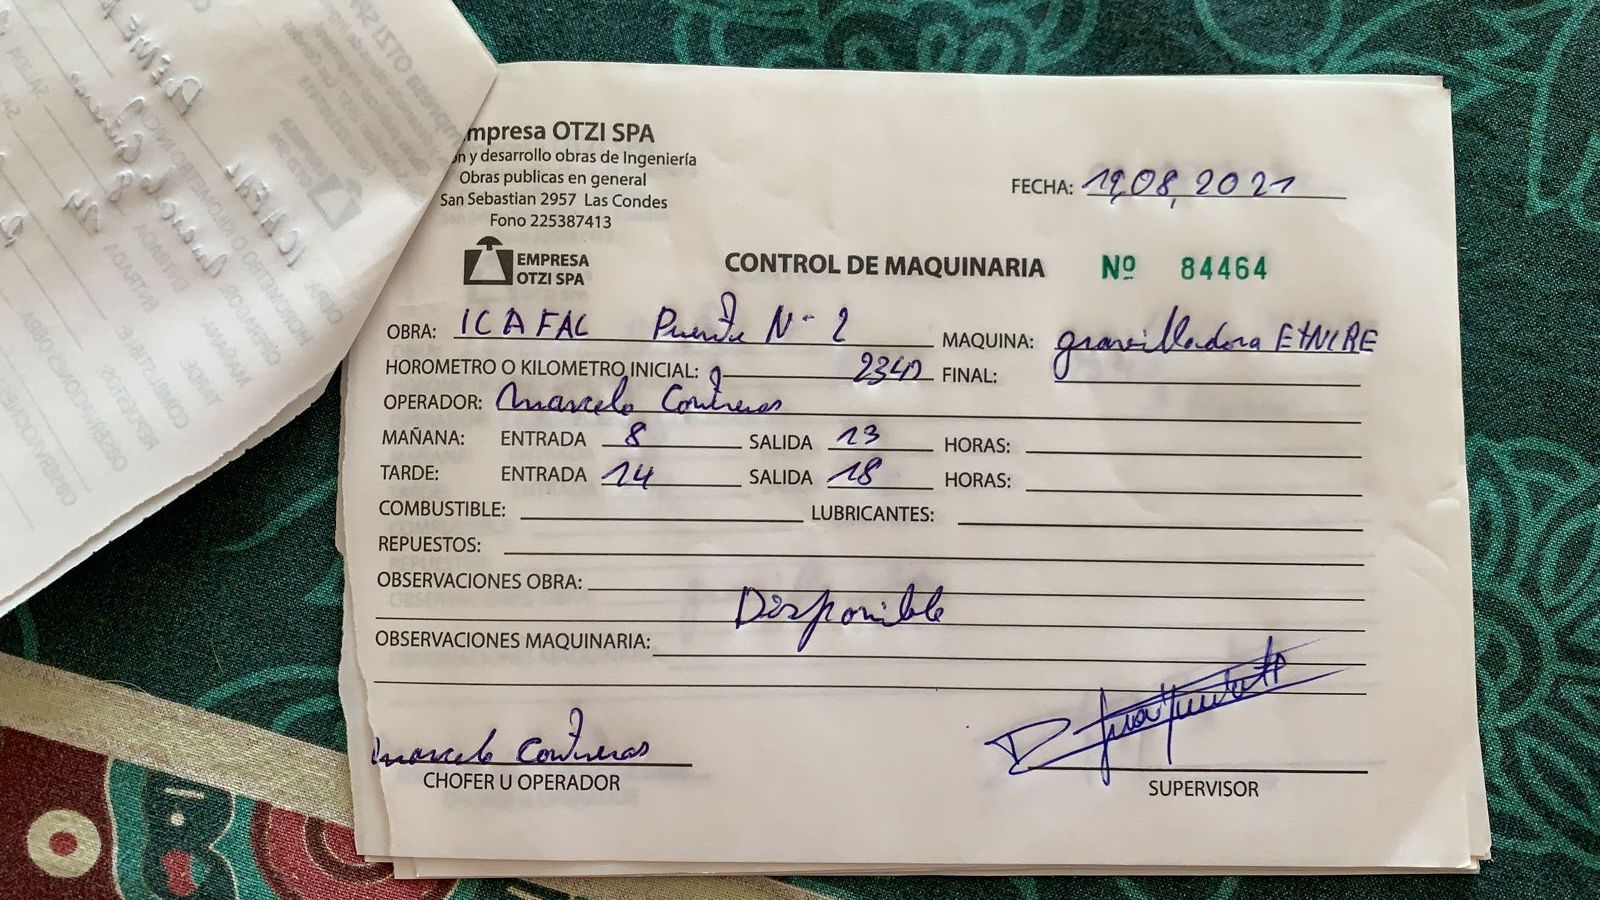 mpresa OTZI SPA
n y desarrollo obras de Ingeniería
Obras publicas en general
San Sebastian 2957 Las Condes
Fono 225387413
FECHA: 19,08,2021
EMPRESA
OTZI SPA
CONTROL DE MAQUINARIA Nº 84464
OBRA: ICAFAL Puente N-2 MAQUINA: gravilladora ETNIRE
HOROMETRO O KILOMETRO INICIAL: 2340 FINAL:
OPERADOR: Marcelo Contreras
MAÑANA: ENTRADA 8 SALIDA 13 HORAS:
TARDE: ENTRADA 14 SALIDA 18 HORAS:
COMBUSTIBLE: LUBRICANTES:
REPUESTOS:
OBSERVACIONES OBRA:
Disponible
OBSERVACIONES MAQUINARIA:
Marcelo Contreras
CHOFER U OPERADOR
SUPERVISOR